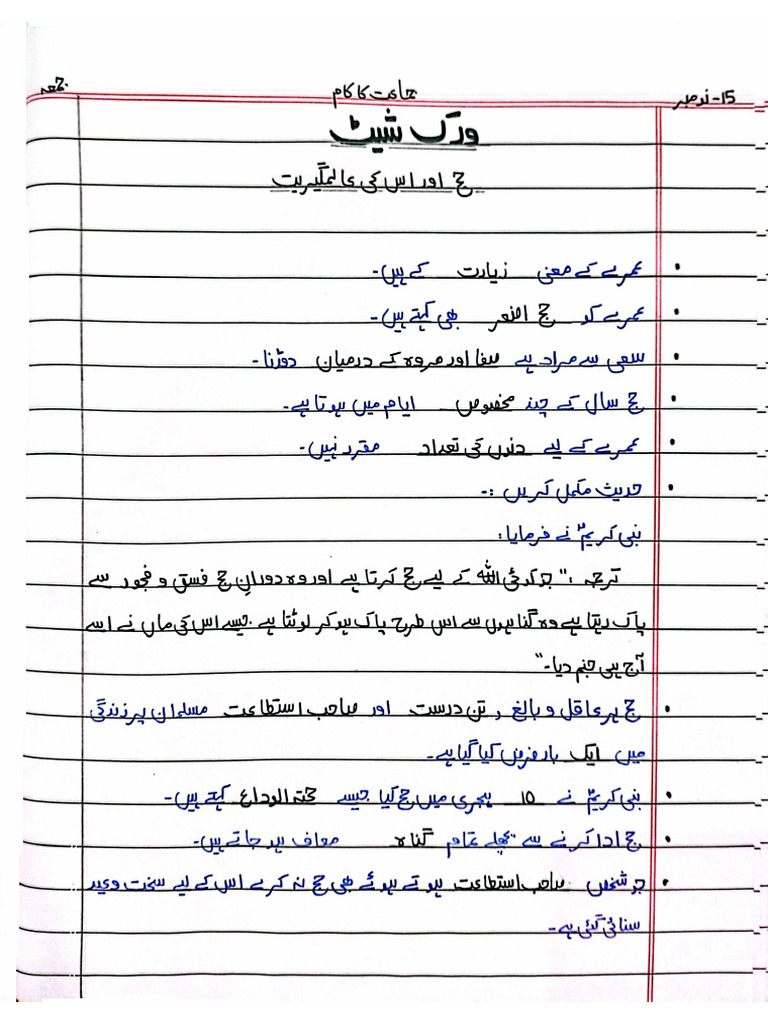 15-نومبر جماعت کا کام جمعہ
ورک شیٹ
حج اور اس کی عالمگیریت
عمرے کے معنی زیارت کے ہیں۔
عمرے کو حج اصغر بھی کہتے ہیں۔
سعی سے مراد ہے صفا اور مروہ کے درمیان دوڑنا۔
حج سال کے چند مخصوص ایام میں ہوتا ہے۔
عمرے کے لیے دنوں کی تعداد مقرر نہیں۔
حدیث مکمل کریں :-
نبی کریمؐ نے فرمایا:
ترجمہ :" جو کوئی اللہ کے لیے حج کرتا ہے اور وہ دورانِ حج فسق و فجور سے
پاک رہتا ہے وہ گناہوں سے اس طرح پاک ہو کر لوٹتا ہے جیسے اس کی ماں نے اسے
آج ہی جنم دیا۔"
حج ہر عاقل و بالغ ، تن درست اور صاحب استطاعت مسلمان پر زندگی
میں ایک بار فرض کیا گیا ہے۔
نبی کریمؐ نے 10 ہجری میں حج کیا جسے حجتہ الوداع کہتے ہیں۔
حج ادا کرنے سے پچھلے تمام گناہ معاف ہو جاتے ہیں۔
جو شخص صاحب استطاعت ہوتے ہوئے بھی حج نہ کرے اس کے لیے سخت وعید
سنائی گئی ہے۔